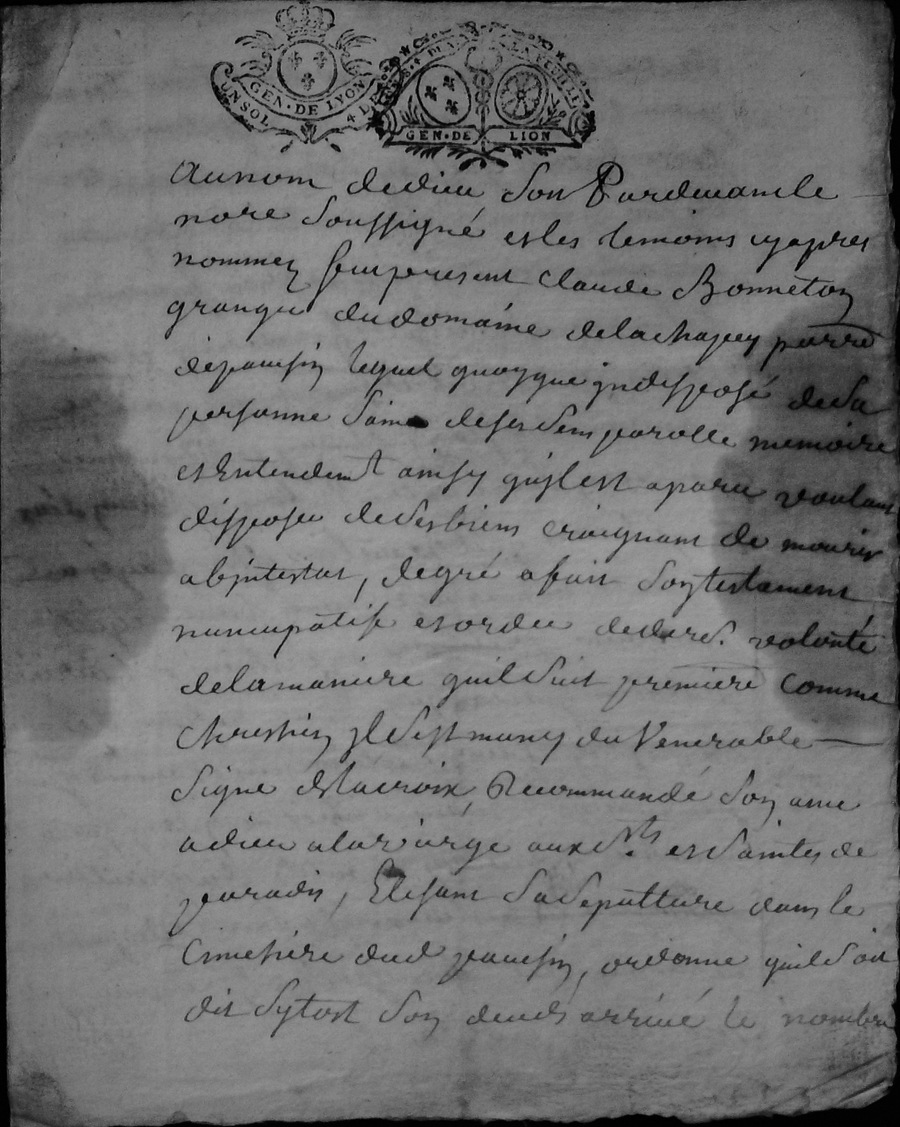 GEN · DE LYON
UN SOL
GEN · DE LION
Au nom de dieu soit Pardevant le
nore soussigné et les temoins cy apres
nommez fut present Claude Bonneton
granger du domaine de la chapuy parre
de panissin lequel quoyque indisposé de sa
personne sain de ses sens parolle memoire
et Entendemt ainsy quil est aparu voulant
disposer de ses biens craignant de mourir
abintestat, de gré a fait son testament
nuncupatif et ordce de dere volonté
de la maniere quil suit premierent comme
Chrestien il sest muny du Venerable
Signe de la croix Recommandé son ame
a dieu a la vierge aux Sts et saintes de
paradis, Elisant sa sepulture dans le
Cimetiere dud panissin, ordonne quil soit
dit sytost son deceds arrivé le nombre